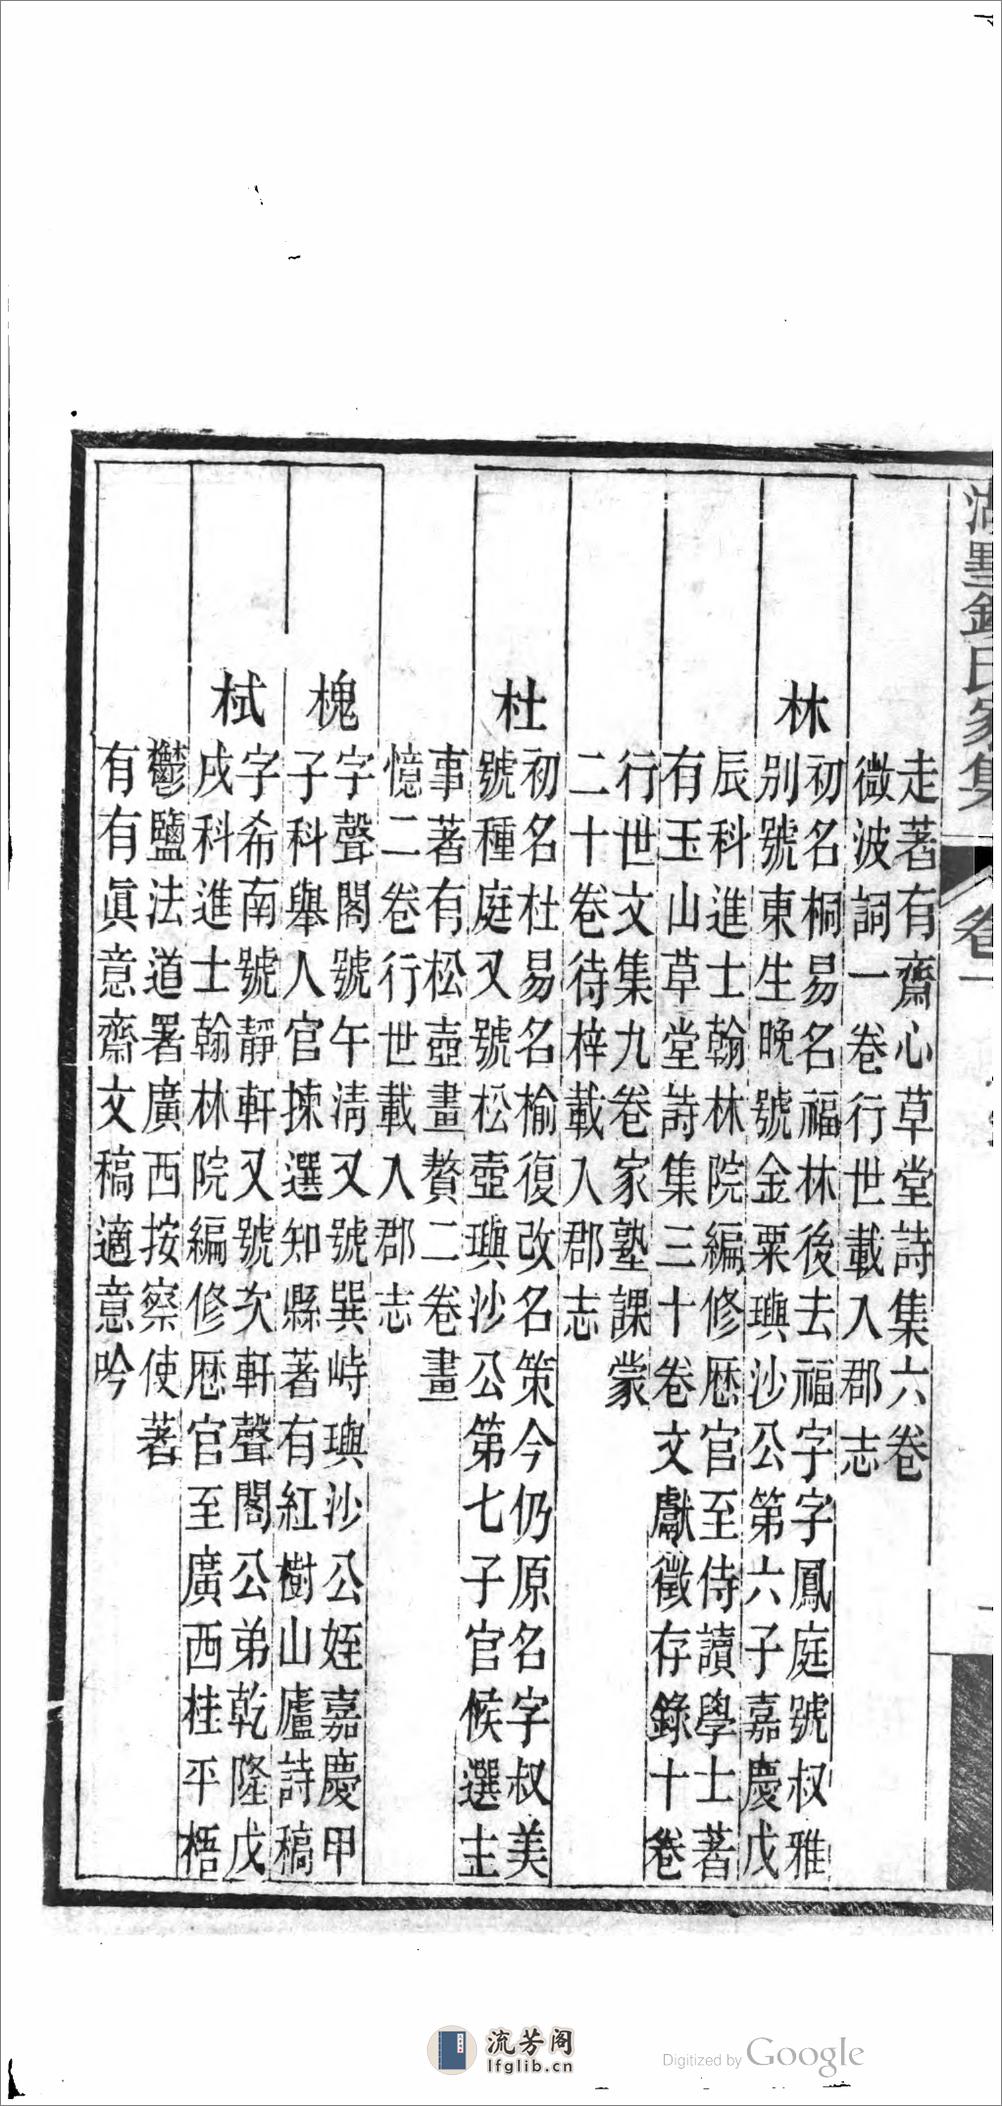 湖墅錢氏家集
卷一
走著有齋心草堂詩集六卷
微波詞一卷行世載入郡志
林
初名桐易名福林後去福字字鳳庭號叔雅
別號東生晚號金粟璵沙公第六子嘉慶戊
辰科進士翰林院編修歷官至侍讀學士著
有玉山草堂詩集三十卷文獻徵存錄十卷
行世文集九卷家塾課蒙
二十卷待梓載入郡志
杜
初名杜易名榆復改名策今仍原名字叔美
號種庭又號松壺璵沙公第七子官候選主
事著有松壺畫贅二卷畫
憶二卷行世載入郡志
槐
字聲閣號午淸又號巽峙璵沙公姪嘉慶甲
子科舉人官揀選知縣著有紅樹山廬詩稿
栻
字希南號靜軒又號次軒聲閣公弟乾隆戊
戌科進士翰林院編修歷官至廣西桂平梧
鬱鹽法道署廣西按察使著
有有眞意齋文稿適意吟
流芳阁
lfglib.cn
Digitized by Google